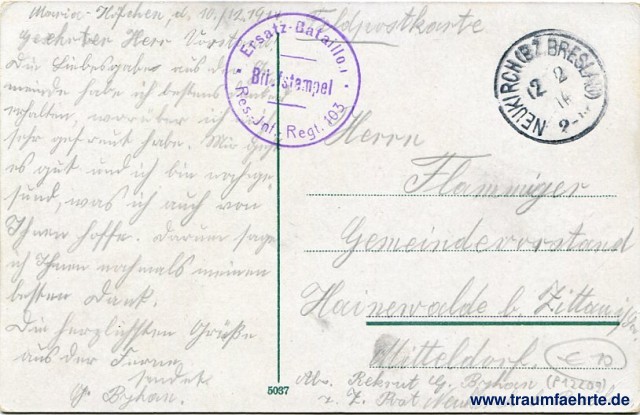 Maria-Höfchen, d. 10./12. 19
Feldpostkarte
Geehrter Herr Vorst
Die Liebesgaben aus der Ge-
meinde habe ich bestens
erhalten, worüber ich
sehr gefreut habe. Mir geht
es gut und ich bin noch ge-
sund, was ich auch von
Ihnen hoffe. Darum sage
ich Ihnen nochmals meinen
besten Dank.
Die herzlichsten Grüße
aus der Ferne
sendet
G. Byhan.
Ersatz-Bataillon
Briefstempel
Res.-Inf.-Regt. 103
NEUKIRCH (BZ. BRESLAU)
12 2
Herrn
Flammiger
Gemeindevorstand
Hainewalde b. Zittau i/Sa.
Mitteldorf.
€ 10
(P12209)
Abs. Rekrut G. Byhan
z. Z. Post
5037
www.traumfaehrte.de